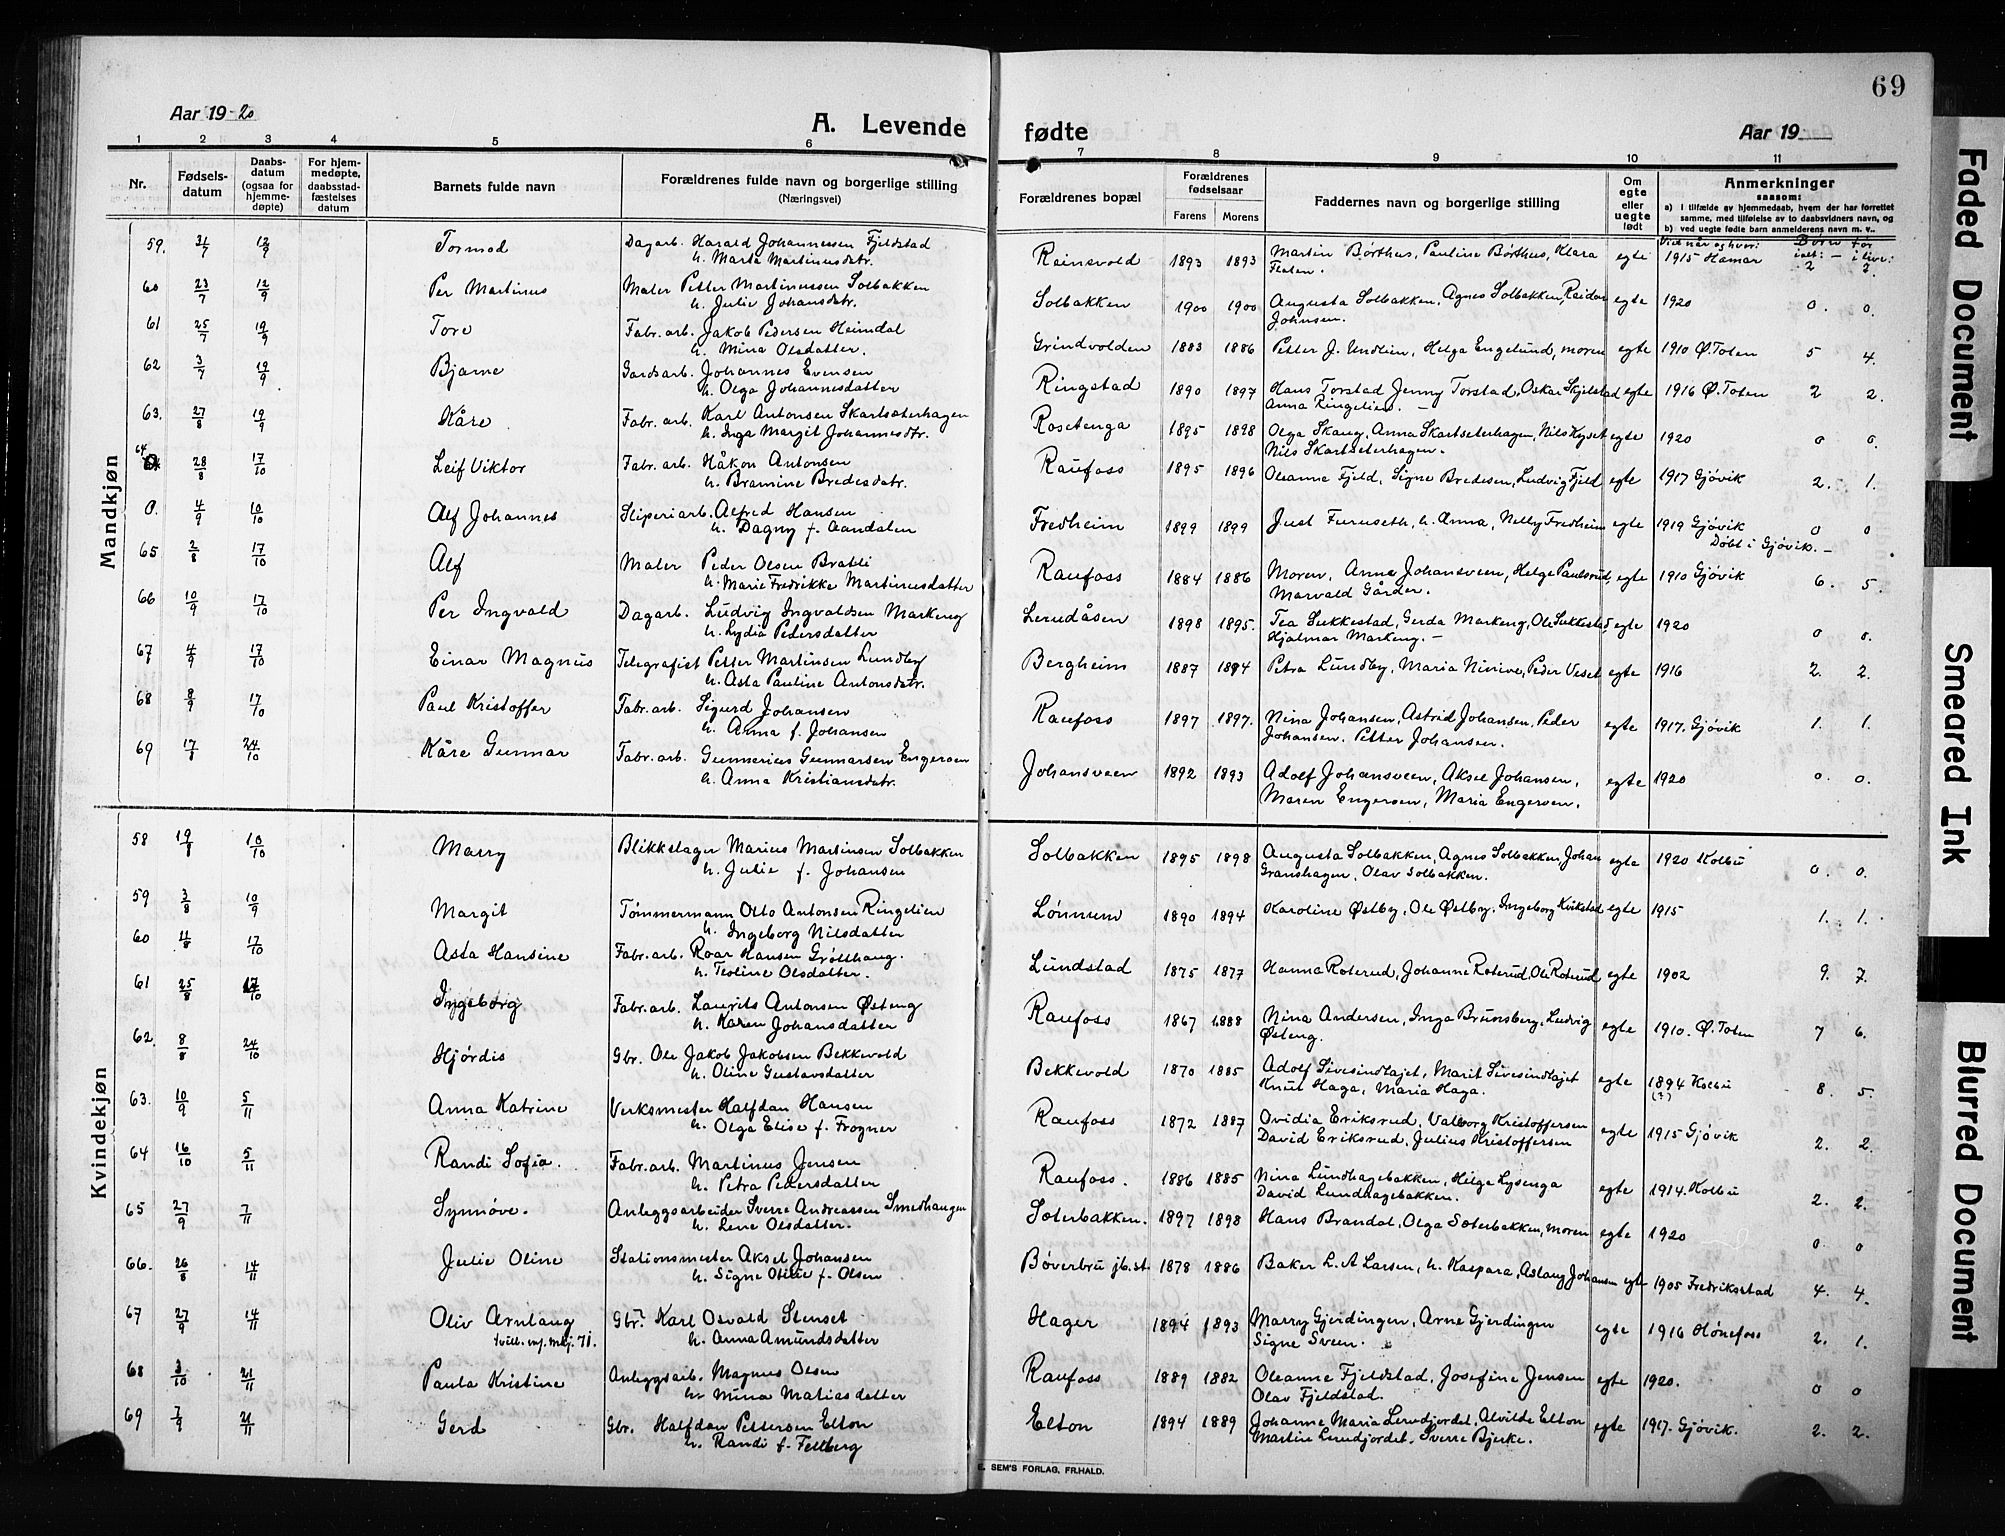 69
Aar 19-20
A. Levende
fødte
Aar 19
1 2 3 4 5 6 7 8 9 10 11
Nr.
Fødsels-
datum
Daabs-
datum
(ogsaa for
hjemme-
døpte)
For hjem-
medøpte,
daabsstad-
fæstelses
datum
Barnets fulde navn
Forældrenes fulde navn og borgerlige stilling
(Næringsvei)
Forældrenes bopæl
Forældrenes
fødselsaar
Farens Morens
Faddernes navn og borgerlige stilling
Om
egte
eller
uegte
født
Anmerkninger
saasom:
a) i tilfælde av hjemmedaab, hvem der har forrettet
samme, med tilføielse av to daabsvidners navn, og
b) ved uegte fødte barn anmelderens navn m. v..
Viet når og hvor: Børn før
ialt: - i live:
Mandkjøn
59. 31/7 12/9 Tormod Dagarb. Harald Johannessen Fjeldstad Reinsvold 1893 1893 Martin Børthus, Pauline Børthus, Klara egte 1915 Hamar 2 2.
h. Marta Martinusdatr. Flaten.
60 23/7 12/9 Per Martinus Maler Petter Martinussen Solbakken Solbakken 1900 1900 Augusta Solbakken, Agnes Solbakken, Reidar egte 1920 0. 0.
h. Julie Johansdtr. Johnsen.
61 25/7 19/9 Tore Fabr. arb. Jakob Pedersen Heimdal Grindvolden 1883 1886 Petter J. Undlien, Helga Engelund, moren egte 1910 Ø. Toten 5 4.
h. Mina Olsdatter.
62 3/7 19/9 Bjarne Gardsarb. Johannes Evensen Ringstad 1890 1897 Hans Torstad Jenny Torstad, Oskar Skjelstad egte 1916 Ø. Toten 2 2.
h. Olga Johannesdatter Anna Ringelien. -
63. 27/8 19/9 Kåre Fabr. arb. Karl Antonsen Skartseterhagen Rosetenga 1895 1898 Olga Skaug, Anna Skartseterhagen, Nils Kyset egte 1920 0 0.
h. Inga Margit Johannesdtr. Nils Skartseterhagen.
64 28/8 17/10 Leif Viktor Fabr. arb. Håkon Antonsen Raufoss 1895 1896 Oleanna Fjeld, Signe Bredesen, Ludvig Fjeld egte 1917 Gjøvik 2. 1.
h. Bramine Bredesdtr.
0. 4/9 10/10 Alf Johannes Sliperiarb. Alfred Hansen Fredheim 1899 1899 Just Furuseth, h. Anna, Nelly Fredheim egte 1919 Gjøvik 0 0
h. Dagny f. Aandalen Døbt i Gjøvik. -
65 2/8 17/10 Alf Maler Peder Olsen Bratli Raufoss 1884 1886 Moren, Anna Johansveen, Helge Paulsrud, egte 1910 Gjøvik 6. 5.
h. Marie Fredrikke Martinusdatter Marvald Gårder.
66 10/9 17/10 Per Ingvald Dagarb. Ludvig Ingvaldsen Markeng Lerudåsen 1898 1895. Tea Sukkestad, Gerda Markeng, Ole Sukkestad egte 1920 0 0.
h. Lydia Pedersdatter Hjalmar Markeng. -
67 4/9 17/10 Einar Magnus Telegrafist Petter Martinsen Lundby Bergheim 1887 1894 Petra Lundby, Maria Ninive, Peder Veset egte 1916 2. 2.
h. Asta Pauline Antonsdtr.
68 8/9 17/10 Paul Kristoffer Fabr. arb. Sigurd Johansen Raufoss 1897 1897. Nina Johansen, Astrid Johansen, Peder egte 1917. Gjøvik 1. 1.
h. Anna f. Johansen Johansen. Petter Johansen.
69 17/8 24/10 Kåre Gunnar Fabr. arb. Gunnerius Gunnarsen Engersen Johansveen 1892 1893 Adolf Johansveen, Aksel Johansen, egte 1920 0. 0.
h. Anna Kristiansdtr. Maren Engersen, Maria Engersen.
Kvindekjøn
58 19/8 10/10 Marry Blikkslager Marius Martinsen Solbakken Solbakken 1895 1898 Augusta Solbakken, Agnes Solbakken, Johan egte 1920 Kolbu 0. 0.
h. Julie f. Johansen Granshagen, Olav Solbakken.
59 3/8 10/9 Margit Tømmermann Otto Antonsen Ringelien Lønnum 1890 1894 Karoline Østby, Ole Østby, Ingeborg Kvikstad egte 1915 1. 1.
h. Ingeborg Nilsdatter
60 11/8 17/10 Asta Hansine Fabr. arb. Roar Hansen Grøtthaug. Lundstad 1875 1877 Hanna Roterud, Johanne Roterud, Ole Roterud egte 1902 9. 7.
h. Teoline Olsdatter.
61 25/8 17/10 Ingeborg Fabr. arb. Laurits Antonsen Østeng Raufoss 1867 1888 Nina Andersen, Inga Brunsberg, Ludvig egte 1910. Ø. Toten 7 6.
h. Karen Johansdatter Østeng.
62. 8/8 24/10 Hjørdis Gbr. Ole Jakob Jakobsen Bekkevold Bekkevold 1870 1885 Adolf Sivesindtajet, Marit Sivesindtajet egte 1894 Kolbu 8. 5.
h. Oline Gustavsdatter Knut Haga, Maria Haga. (?)
63. 10/9 5/11 Anna Katrine Verksmester Halfdan Hansen Raufoss 1872 1887 Ovidia Eriksrud, Valborg Kristoffersen egte 1915 Gjøvik 2. 2.
h. Olga Elise f. Frogner David Eriksrud, Julius Kristoffersen
64 16/10 5/11 Randi Sofia. Fabr. arb. Martinus Jensen Raufoss. 1886 1885 Nina Lundhagebakken, Helga Lysenga egte 1914. Kolbu 2. 2.
h. Petra Pedersdatter David Lundhagebakken.
65 27/9 7/11 Synnøve. Anleggsarbeider Sverre Andreassen Smedhaugen Seterbakken. 1897 1898 Hans Brandal, Olga Seterbakken, moren egte 1920 0. 0
h. Lene Olsdatter.
66. 26/8 14/11 Julie Oline Stationsmester Aksel Johansen Bøverbru jb. st. 1878 1886 Baker L. A Larsen, h. Kaspara, Aslaug Johansen egte 1905 Fredrikstad 4. 4.
h. Signe Otilie f. Olsen
67 27/9 14/11 Oliv Arnlaug Gbr. Karl Osvald Stenset Hager 1894 1893 Marry Gjerdingen, Arne Gjerdingen egte 1916 Hønefoss 2. 1.
tvill. m. mkj. 71. h. Anna Amundsdatter Signe Sveen.
68 3/10 21/11 Paula Kristine Anleggsarb. Magnus Olsen Raufoss 1889 1882 Oleanne Fjeldstad, Josefine Jensen egte 1920. 0 0
h. Mina Matiasdatter Olav Fjeldstad.
69 7/9 21/11 Gerd Gbr. Halfdan Pettersen Elton Elton 1894 1889 Johanne Maria Lerudjordet, Alvilde Elton egte 1917. Gjøvik. 2. 2.
h. Randi f. Fellberg Martin Lerudjordet, Sverre Bjerke.
E. SEM'S FORLAG, FR.HALD.
Faded Document
Smeared Ink
Blurred Document